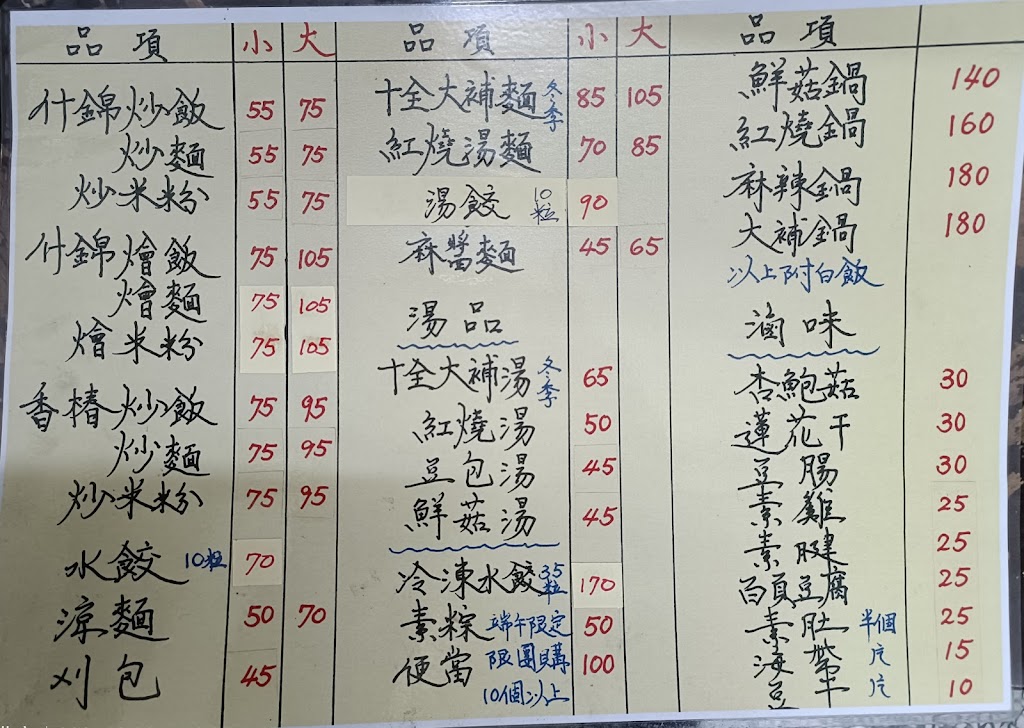 品項 小 大
什錦炒飯 55 75
炒麵 55 75
炒米粉 55 75
什錦燴飯 75 105
燴麵 75 105
燴米粉 75 105
香椿炒飯 75 95
炒麵 75 95
炒米粉 75 95
水餃 10粒 70
涼麵 50 70
刈包 45
品項 小 大
十全大補麵 冬季 85 105
紅燒湯麵 70 85
湯餃 10粒 90
麻醬麵 45 65
湯品
十全大補湯 冬季 65
紅燒湯 50
豆包湯 45
鮮菇湯 45
冷凍水餃 35粒 170
素粽 端午限定 50
便當 限團購 100
10個以上
品項
鮮菇鍋 140
紅燒鍋 160
麻辣鍋 180
大補鍋 180
以上附白飯
滷味
杏鮑菇 30
蓮花干 30
豆腸 30
素雞 25
素腱 25
百頁豆腐 25
素肚 半個 25
海帶 片 15
豆干 片 10